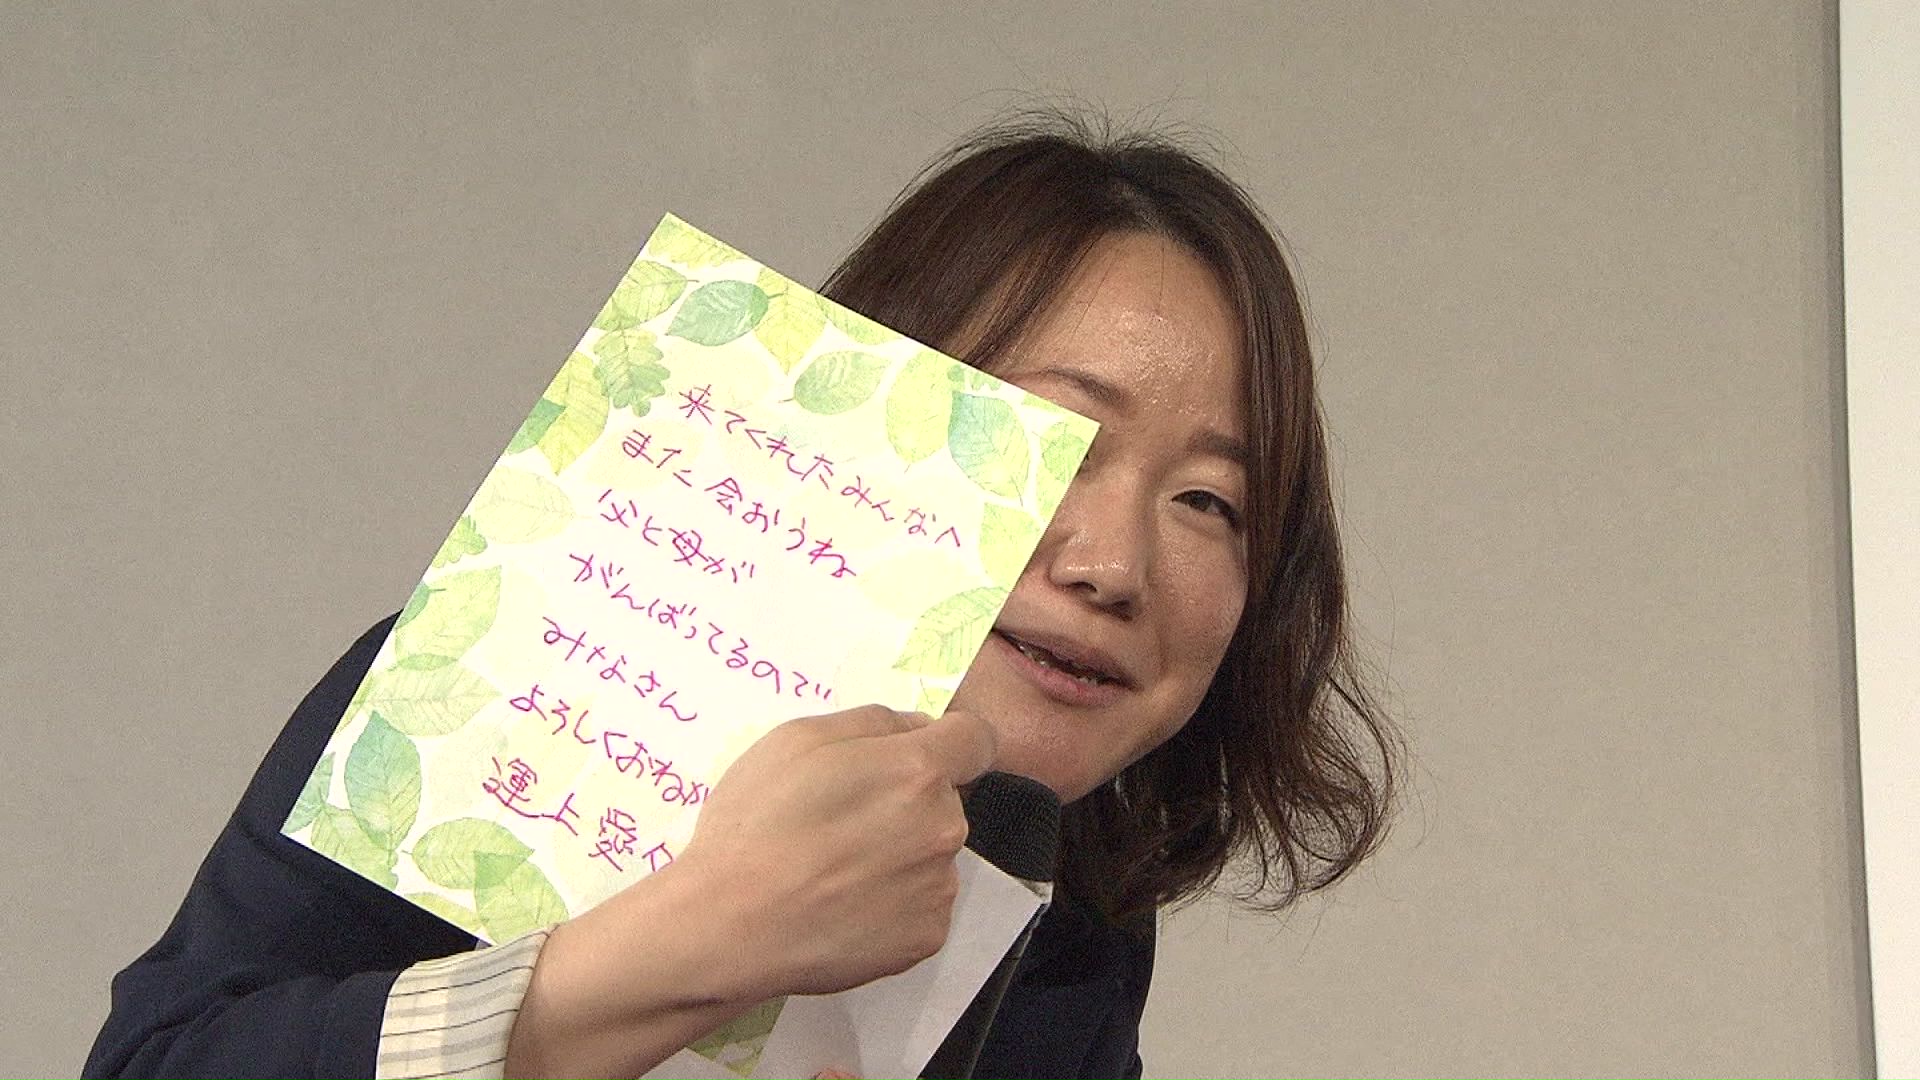 来てくれたみんなへ
また会おうね
父と母が
がんばってるので
みなさん
よろしくおねが
運上愛々